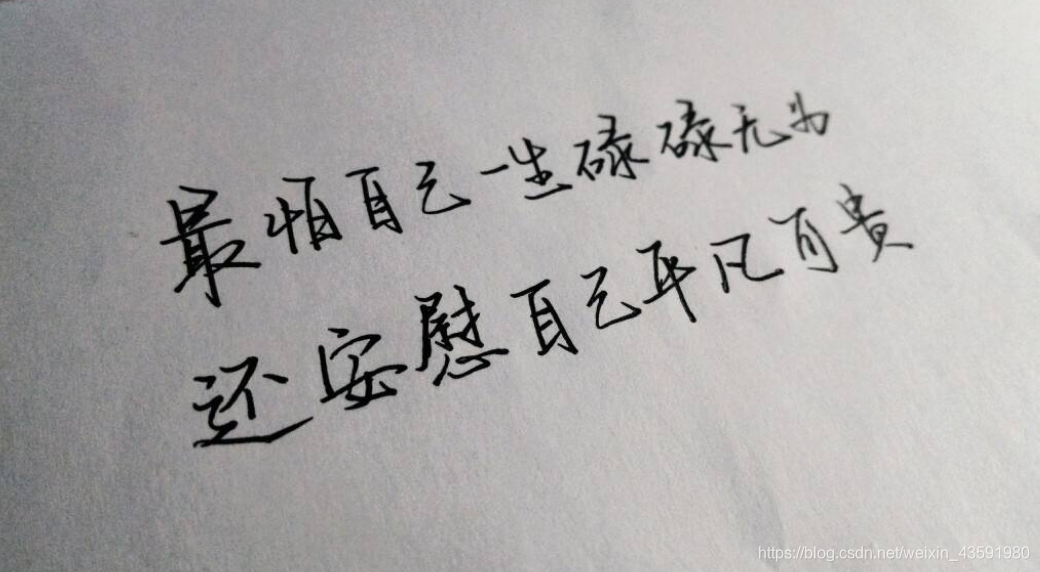 最怕自己一生碌碌无为
还安慰自己平凡可贵
https://blog.csdn.net/weixin_43591980